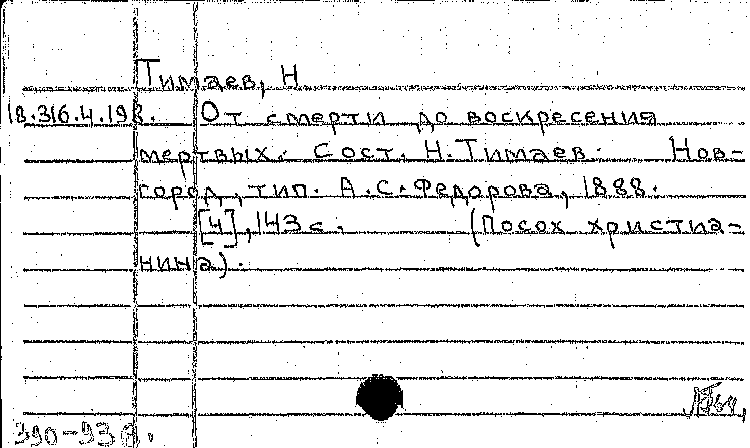 Тимаев, Н
18.316.4.198. От смерти до воскресения
мертвых. Сост. Н. Тимаев. Нов-
город, тип. А.С. Федорова, 1888.
[4], 143 с. (Посох христиа-
нина).
390-93